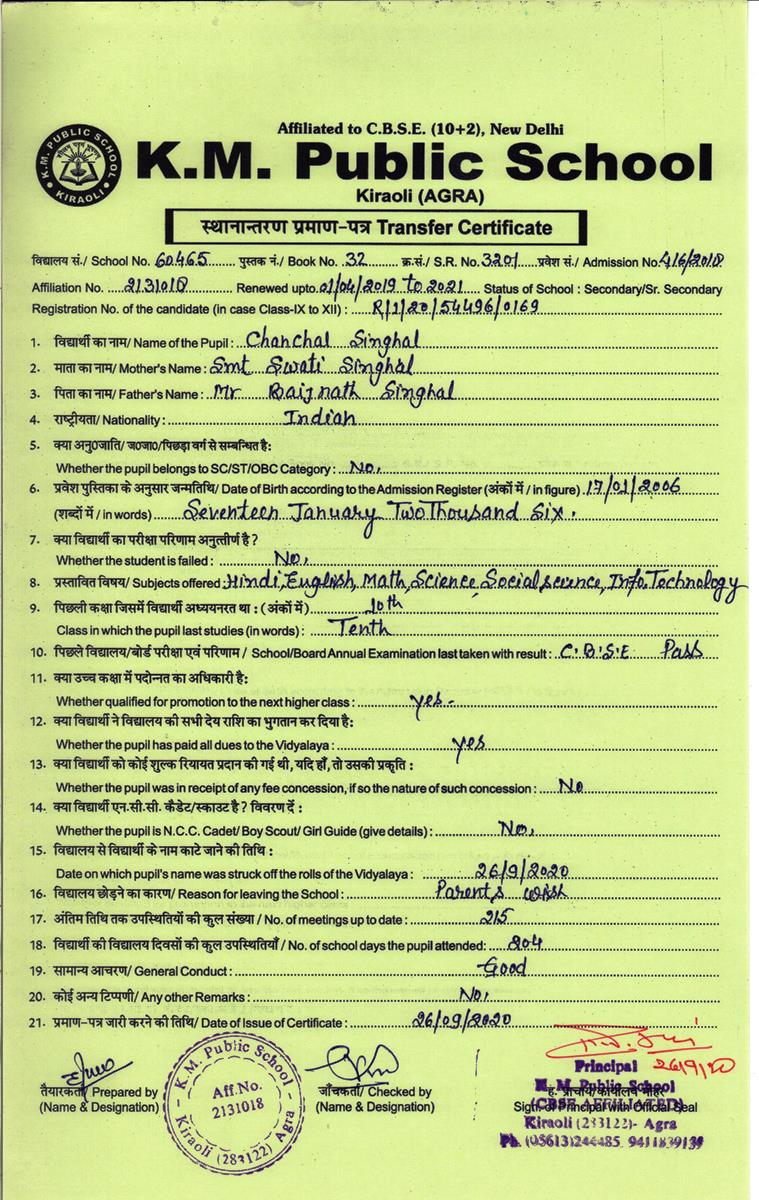 Affiliated to C.B.S.E. (10+2), New Delhi
K.M. PUBLIC SCHOOL
KIRAOLI
K.M. Public School
Kiraoli (AGRA)
स्थानान्तरण प्रमाण-पत्र Transfer Certificate
विद्यालय सं./ School No. 60465 पुस्तक नं./ Book No. 32 क्र.सं./ S.R. No. 3201 प्रवेश सं./ Admission No. 416/2018
Affiliation No. 2131018 Renewed upto 01/04/2019 to 2021 Status of School : Secondary/Sr. Secondary
Registration No. of the candidate (in case Class-IX to XII) : R/1/20/54496/0169
1. विद्यार्थी का नाम/ Name of the Pupil : Chanchal Singhal
2. माता का नाम/ Mother's Name : Smt Swati Singhal
3. पिता का नाम/ Father's Name : Mr Baijnath Singhal
4. राष्ट्रीयता/ Nationality : Indian
5. क्या अनु0जाति/ ज0जा0/पिछड़ा वर्ग से सम्बन्धित है:
Whether the pupil belongs to SC/ST/OBC Category : No.
6. प्रवेश पुस्तिका के अनुसार जन्मतिथि/ Date of Birth according to the Admission Register (अंकों में / in figure) 17/01/2006
(शब्दों में / in words) Seventeen January Two Thousand Six.
7. क्या विद्यार्थी का परीक्षा परिणाम अनुत्तीर्ण है ?
Whether the student is failed : No.
8. प्रस्तावित विषय/ Subjects offered Hindi, English, Math, Science, Social science, Info. Technology
9. पिछली कक्षा जिसमें विद्यार्थी अध्ययनरत था : (अंकों में) 10th
Class in which the pupil last studies (in words) : Tenth
10. पिछले विद्यालय/बोर्ड परीक्षा एवं परिणाम / School/Board Annual Examination last taken with result : C.B.S.E Pass
11. क्या उच्च कक्षा में पदोन्नत का अधिकारी है:
Whether qualified for promotion to the next higher class : yes -
12. क्या विद्यार्थी ने विद्यालय की सभी देय राशि का भुगतान कर दिया है:
Whether the pupil has paid all dues to the Vidyalaya : yes
13. क्या विद्यार्थी को कोई शुल्क रियायत प्रदान की गई थी, यदि हाँ, तो उसकी प्रकृति :
Whether the pupil was in receipt of any fee concession, if so the nature of such concession : No
14. क्या विद्यार्थी एन.सी.सी. कैडेट/स्काउट है ? विवरण दें :
Whether the pupil is N.C.C. Cadet/ Boy Scout/ Girl Guide (give details) : No.
15. विद्यालय से विद्यार्थी के नाम काटे जाने की तिथि :
Date on which pupil's name was struck off the rolls of the Vidyalaya : 26/9/2020
16. विद्यालय छोड़ने का कारण/ Reason for leaving the School : Parent's wish
17. अंतिम तिथि तक उपस्थितियों की कुल संख्या / No. of meetings up to date : 215
18. विद्यार्थी की विद्यालय दिवसों की कुल उपस्थितियाँ / No. of school days the pupil attended: 204
19. सामान्य आचरण/ General Conduct : Good
20. कोई अन्य टिप्पणी/ Any other Remarks : No.
21. प्रमाण-पत्र जारी करने की तिथि/ Date of Issue of Certificate : 26/09/2020
Principal 26/9/20
तैयारकर्ता/ Prepared by
(Name & Designation)
K.M. Public School
Aff.No.
2131018
Kiraoli (283122) Agra
जाँचकर्ता/ Checked by
(Name & Designation)
K. M. Public School
ह. प्राचार्य/कार्यालय मोहर
(CBSE AFFILIATED)
Sign. of Principal with Official Seal
Kiraoli (283122)- Agra
Ph. (05613)244485, 9411839139